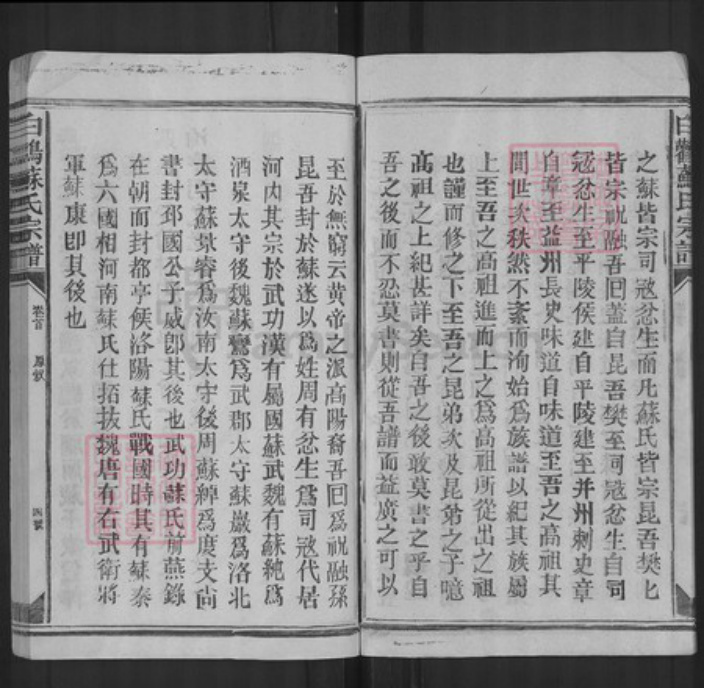 之蘇皆宗司寇忿生而凡蘇氏皆宗昆吾樊七
皆宗祝融吾回蓋自昆吾樊至河寇忿生自司
冦忿生至平陵侯建自平陵建至并州刺史章
自章至益州長史味道自味道至吾之高祖其
間世次秩然不紊而洵始爲族譜以紀其族屬
上至吾之高祖進而上之爲高祖所從出之祖
也謹而修之下至吾之昆弟次及昆弟之子噫
高祖之上紀甚詳矣自吾之後敢莫書之乎自
吾之後而不忍莫書則從吾譜而益廣之可以
至於無窮云黃帝之派高陽裔吾回爲祝融孫
昆吾封於蘇遂以爲姓周有忿生爲司寇代居
河內其宗於武功漢有屬國蘇武魏有蘇純爲
酒泉太守後魏蘇鸞爲武郡太守蘇巖爲洛北
太守蘇景睿爲汝南太守後周蘇綽爲度支尚
書封邳國公子威卽其後也武功蘇氏前燕錄
在朝而封都亭侯洛陽蘇氏戰國時其有蘇秦
爲六國相河南蘇氏仕拓拔魏唐有右武衛將
軍蘇康卽其後也
白鶴蘇氏宗譜
卷首
四號